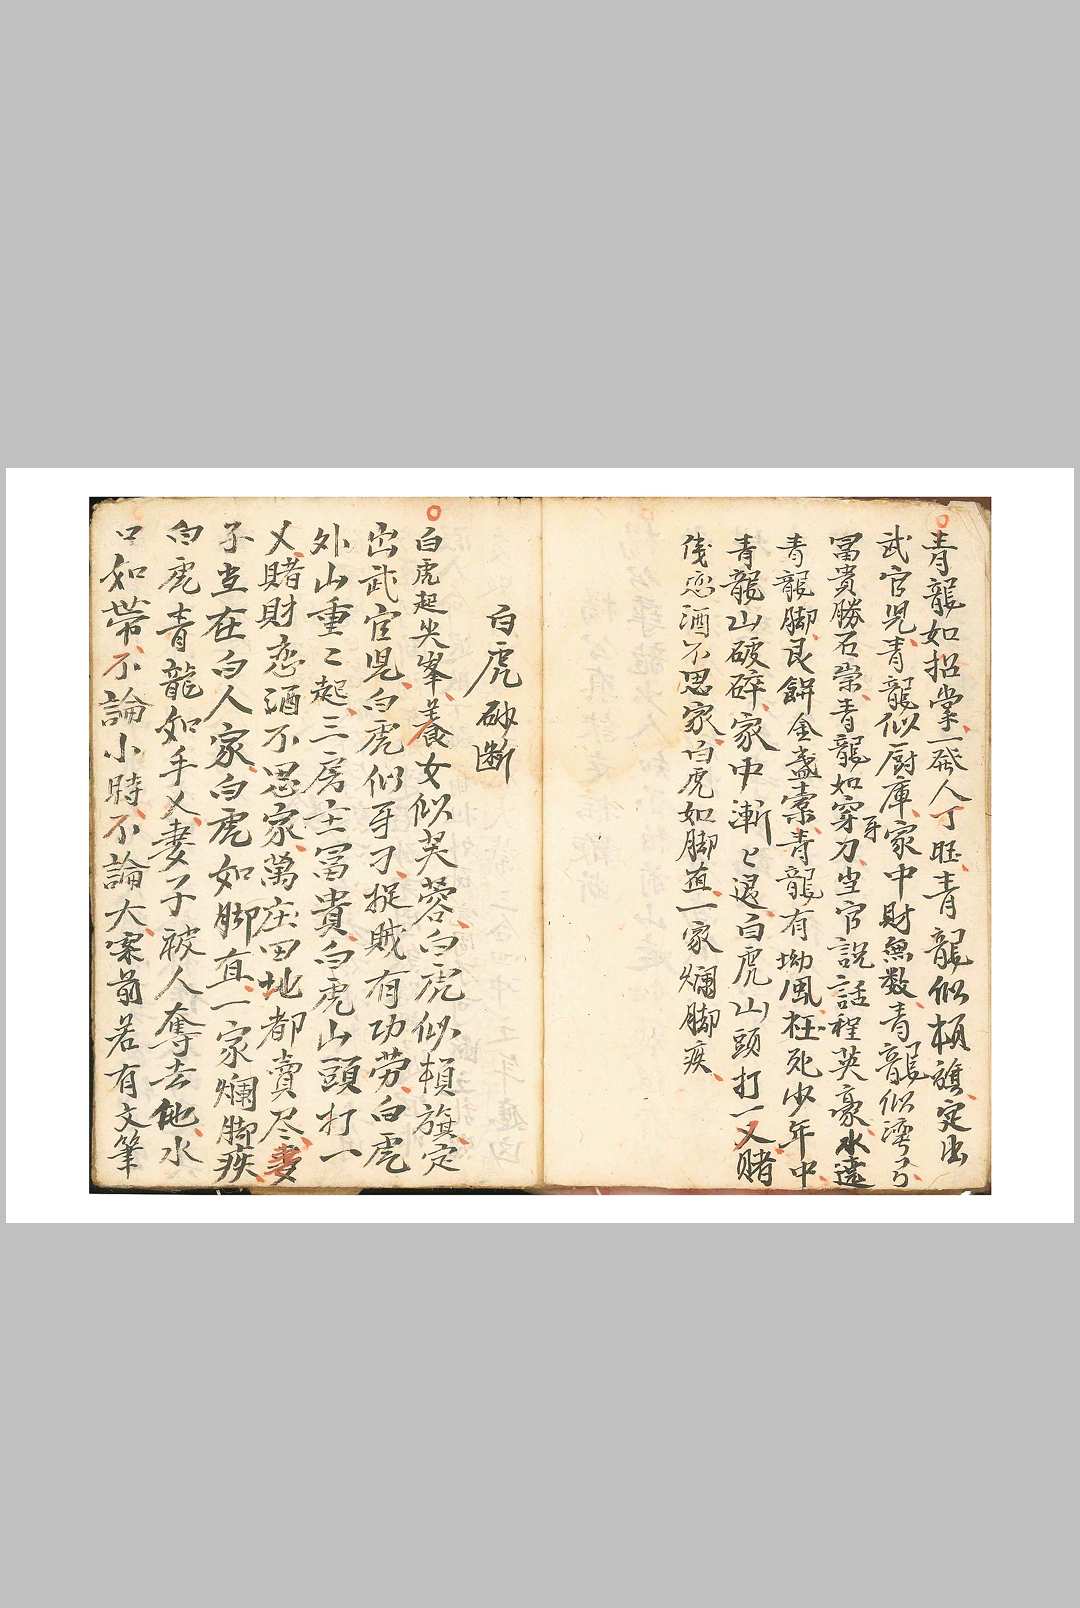 青龍如招掌一發人丁旺青龍似頓旗定出
武官児青龍似厨庫家中財無数青龍似湾弓
冨貴勝石崇青龍如穿牙刀坐官説話程英豪水遶
青龍脚艮餅金盞橐青龍有坳風枉死少年中
青龍山破碎家中漸々退白虎山頭打一乂賭
伐恋酒不思家白虎如脚直一家爛脚疾
白虎砂断
白虎起尖峯養女似芙蓉白虎似頓旗定
出武官児白虎似牙刀捉賊有功劳白虎
外山重々起三房主冨貴白虎山頭打一
乂賭財恋酒不思家萬庄田地都賣尽妻
子坐在白人家白虎如脚直一家爛脚疾
白虎青龍如手乂妻子被人奪去他水
口如带不論小時不論大案前若有文筆